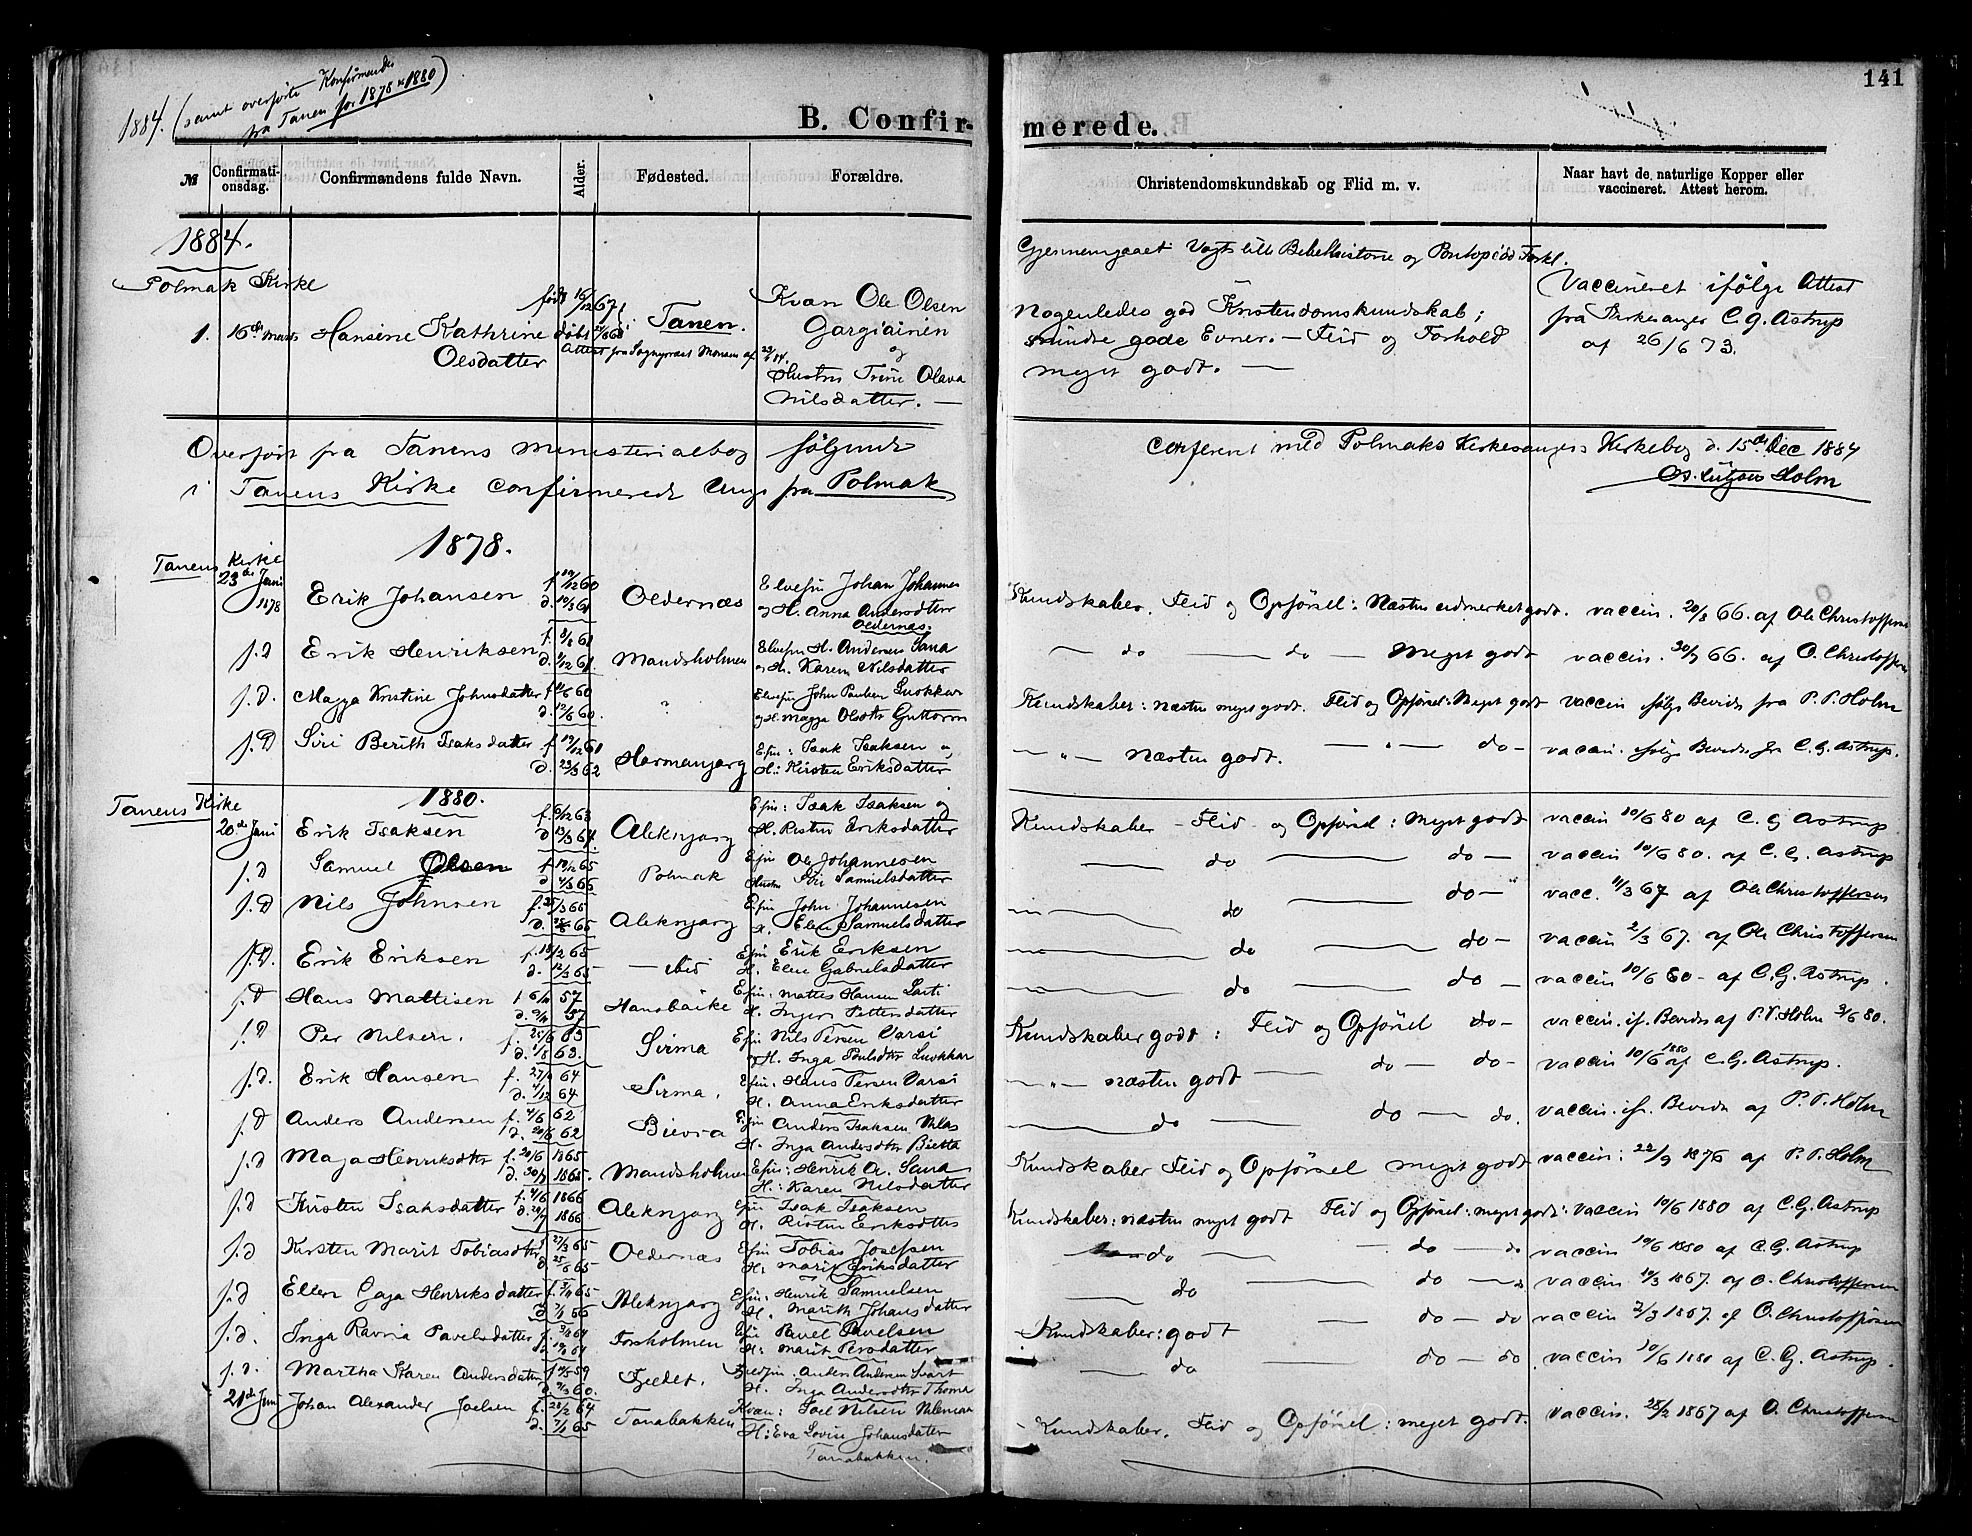 141
1884. (samt overførte Konfirmander
fra Tanen for 1878 & 1880)
B. Confirmerede.
№ Confirmationsdag. Confirmandens fulde Navn. Alder. Fødested. Forældre. Christendomskundskab og Flid m. v. Naar havt de naturlige Kopper eller vaccineret. Attest herom.
1884.
Polmak Kirke
Gjennemgaaet Vogts lille Bibelhistorie og Pontopid. Forkl.
1. 16de Marts Hansine Kathrine Olsdatter født 16/12 67 døbt Tanen. Kvæn Ole Olsen
Gargiainen
og
Hustru Trine Olava
Nilsdatter. —
Nogenledes god Kristendomskundskab;
mindre gode Evner. — Flid og Forhold
meget godt. —
Vaccineret ifølge Attest
fra Kirkesanger C. G. Astrup
af 26/6 73.
Overført fra Tanens ministerialbog følgende
i Tanens Kirke confirmerede Unge fra Polmak
Conferert med Polmaks Kirkesangers Kirkebog d. 15de Dec 1884
Lützow Holm
1878.
Tanens Kirke
23de Juni 1878 Erik Johansen f. 19/12 60 d. 10/3 61 Oldernæs Elvefin Johan Johannes
og H. Anna Andersdtter
Oldernæs.
Kundskaber. Flid og Opførsel: Næsten udmerket godt. vaccin. 20/3 66. af Ole Christoffersen
f. d Erik Henriksen 61 d. 61. Mandsholmen Elvefin H. Andersen Sana
og H. Karen Nilsdatter
— do — do — Meget godt vaccin. 66. af O. Christoffersen
f. d. Magga Kristine Johnsdatter 60 d. 12/6 60. " Elvefin John Paulsen Luokkar
og H. Magga Olsdtr Guttorm
Kundskaber: næsten meget godt. Flid og Opførsel: Meget godt vaccin ifølge Bevids fra P. V. Holm
f. D Siri Berith Isaksdatter f. 19/12 61 d. 23/3 62 Hormanjarg Efin: Isak Isaksen og
H.: Kirsten Eriksdatter
— " — Næsten godt. — " — do — vaccin. ifølge Bevids fra C. G. Astrup.
1880.
Tanens Kirke
20de Juni Erik Isaksen f. 6/12 63 d. 13/3 64. Aleknjarg Efin: Isak Isaksen og
H. Risten Eriksdatter
Kundskaber — Flid — og Opførsel: Meget godt vaccin 10/6 80 af C. G Astrup
f. d Samuel Olsen f. 19/12 65 d. 4/3 66 Polmak Efin Ole Johannesen
Hustru Siri Samuelsdatter
— do — do — vaccin 10/6 80. af C. G. Astrup
f. D Nils Johnsen 65 d. 65 Aleknjarg Efin John Johannesen
H. Elen Samuelsdatter
— do — do — vacc. 11/3 67 af Ole Christoffersen
f. D. Erik Eriksen f. 18/2 65 d. 12/3 65 — ibid Efin Erik Eriksen
H. Elen Gabrielsdatter
— do — do — vaccin 2/3 67. af Ole Christoffersen
f. D Hans Mattisen 57 d. 57 Hansbakke Efin: Mattis Hansen Sarti
H. Inger Pettersdatter
— do — do — vaccin 10/6 80 — af C. G. Astrup.
f. D Per Nilsen. f. 25/6 63 d. 1/8 63. Sirma Efin Nils Persen Varsi
H. Inga Poulsdtr Luokkar
Kundskaber godt: Flid og Opførsel do — vaccin. if. Bevids af P. V. Holm 80.
f. d. Erik Hansen 64 d. 4/12 64 Sirma. Efin: Hans Persen Varsi
H. Anna Eriksdatter
— " — næsten godt — do — do — vaccin 10/6 1880 af C. G. Astrup.
f. D Anders Andersen f. 4/6 62 d. 20/6 62 Bievra Efin Anders Isaksen Nilas
H. Inga Andersdtr Bietta
— do — do — do. vaccin. if. Bevids af P. V. Holm
f. d Maja Henriksdtr f. 20/6 1865 d. 1865. Mandsholmen Efin: Henrik A. Sana
H.: Karen Nilsdatter
Kundskaber Flid og Opførsel meget godt vaccin: 22/9 1876 af P. V. Holm
f. d Kirsten Isaksdatter f. 4/6 1866 d. 1866 Aleknjarg Efin Isak Isaksen
H. Risten Eriksdttr
Kundskaber: næsten meget godt Flid og Opførsel: meget godt: vaccin 10/6 1880 af C. G. Astrup
f. d Kirsten Marit Tobiasdtr 27/3 65 d. 25/6 65 Oldernæs Efin Tobias Josefsen
H: Marit Eriksdatter
do — do — do vaccin 10/6 1880 af C. G. Astrup
f. d Ellen Gaja Henriksdatter 65 d. 66 Aleknjarg Efin: Henrik Samuelsen
H. Marith Johansdatter
— do — do — do vaccin 1867. af O. Christoffersen
f. d. Inga Ravna Pavelsdatter 64 64 Forsholmen Efin Pavel Pavelsen
H: Marit Persdatter
Kundskaber: godt — do — do vaccin 2/3 1867. af O. Christoffersen
f. d. Martha Karen Andersdatter 59 d. 60. Fjeldet. Fjeldfin. Anders Andersen Svart
H. Inga Andersdtr Thomas
— do — do — do vaccin 10/6 1880 af C. G. Astrup.
21de Juni Johan Alexander Joelsen f. 28/2 64 d. 7/1 65 Tanabakken Kvæn: Joel Nilsen
H: Eva Lovise Johansdatter
Tanabakken.
— Kundskaber. Flid og Opførsel: meget godt. vaccin. 28/2 1867 af O. Christoffersen